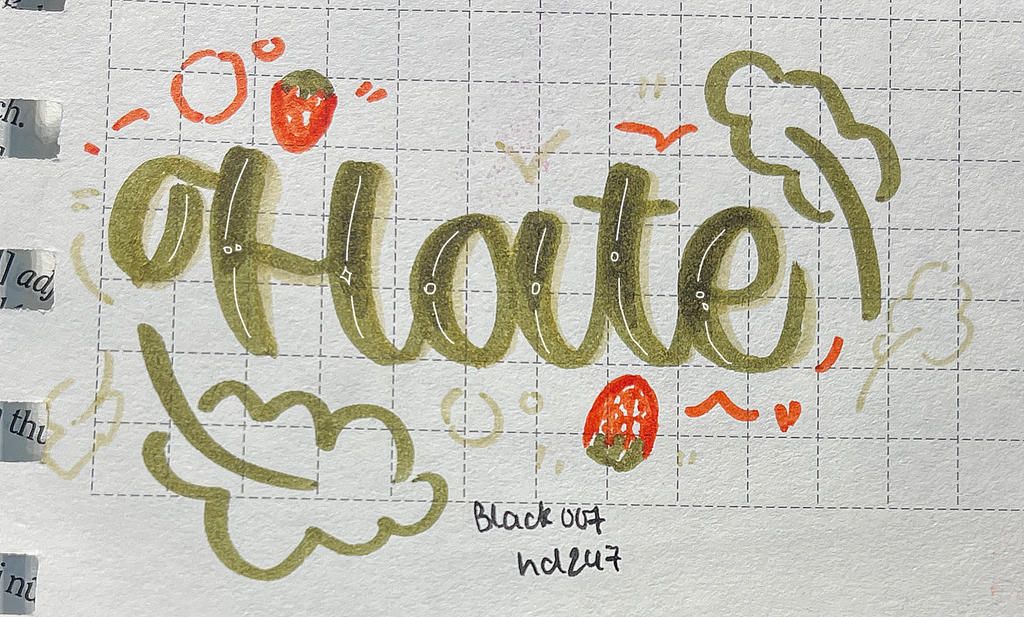 ch.
] adj
thu
nu
Hate
Black 007
hd247